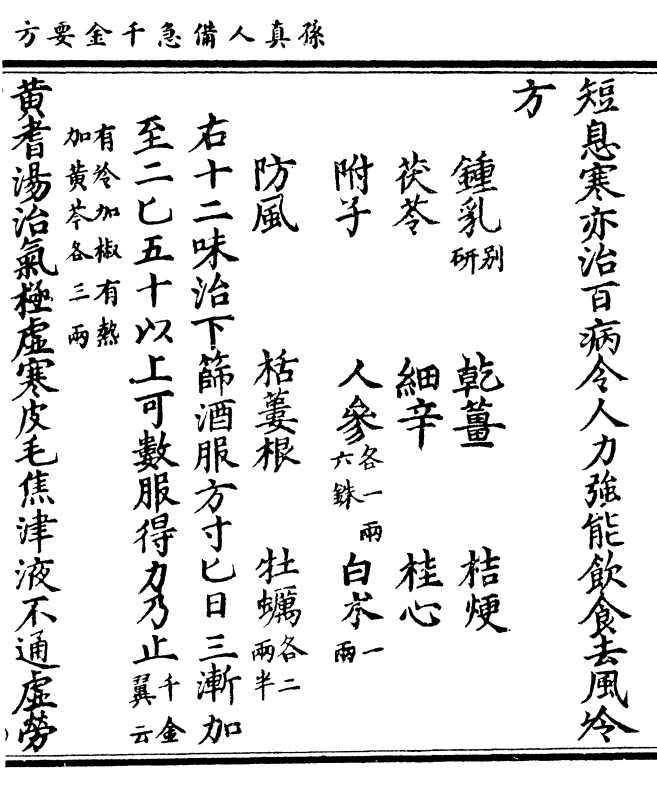 孫真人備急千金要方
短息寒亦治百病令人力強能飲食去風冷
方
鍾乳別研　乾薑　桔梗
茯苓　細辛　桂心
附子　人參各一兩六銖　白朮一兩
防風　栝蔞根　牡蠣各二兩半
右十二味治下篩酒服方寸匕日三漸加
至二匕五十以上可數服得力乃止千金翼云
有冷加椒有熱加黄芩各三兩
黄耆湯治氣極虛寒皮毛焦津液不通虛勞